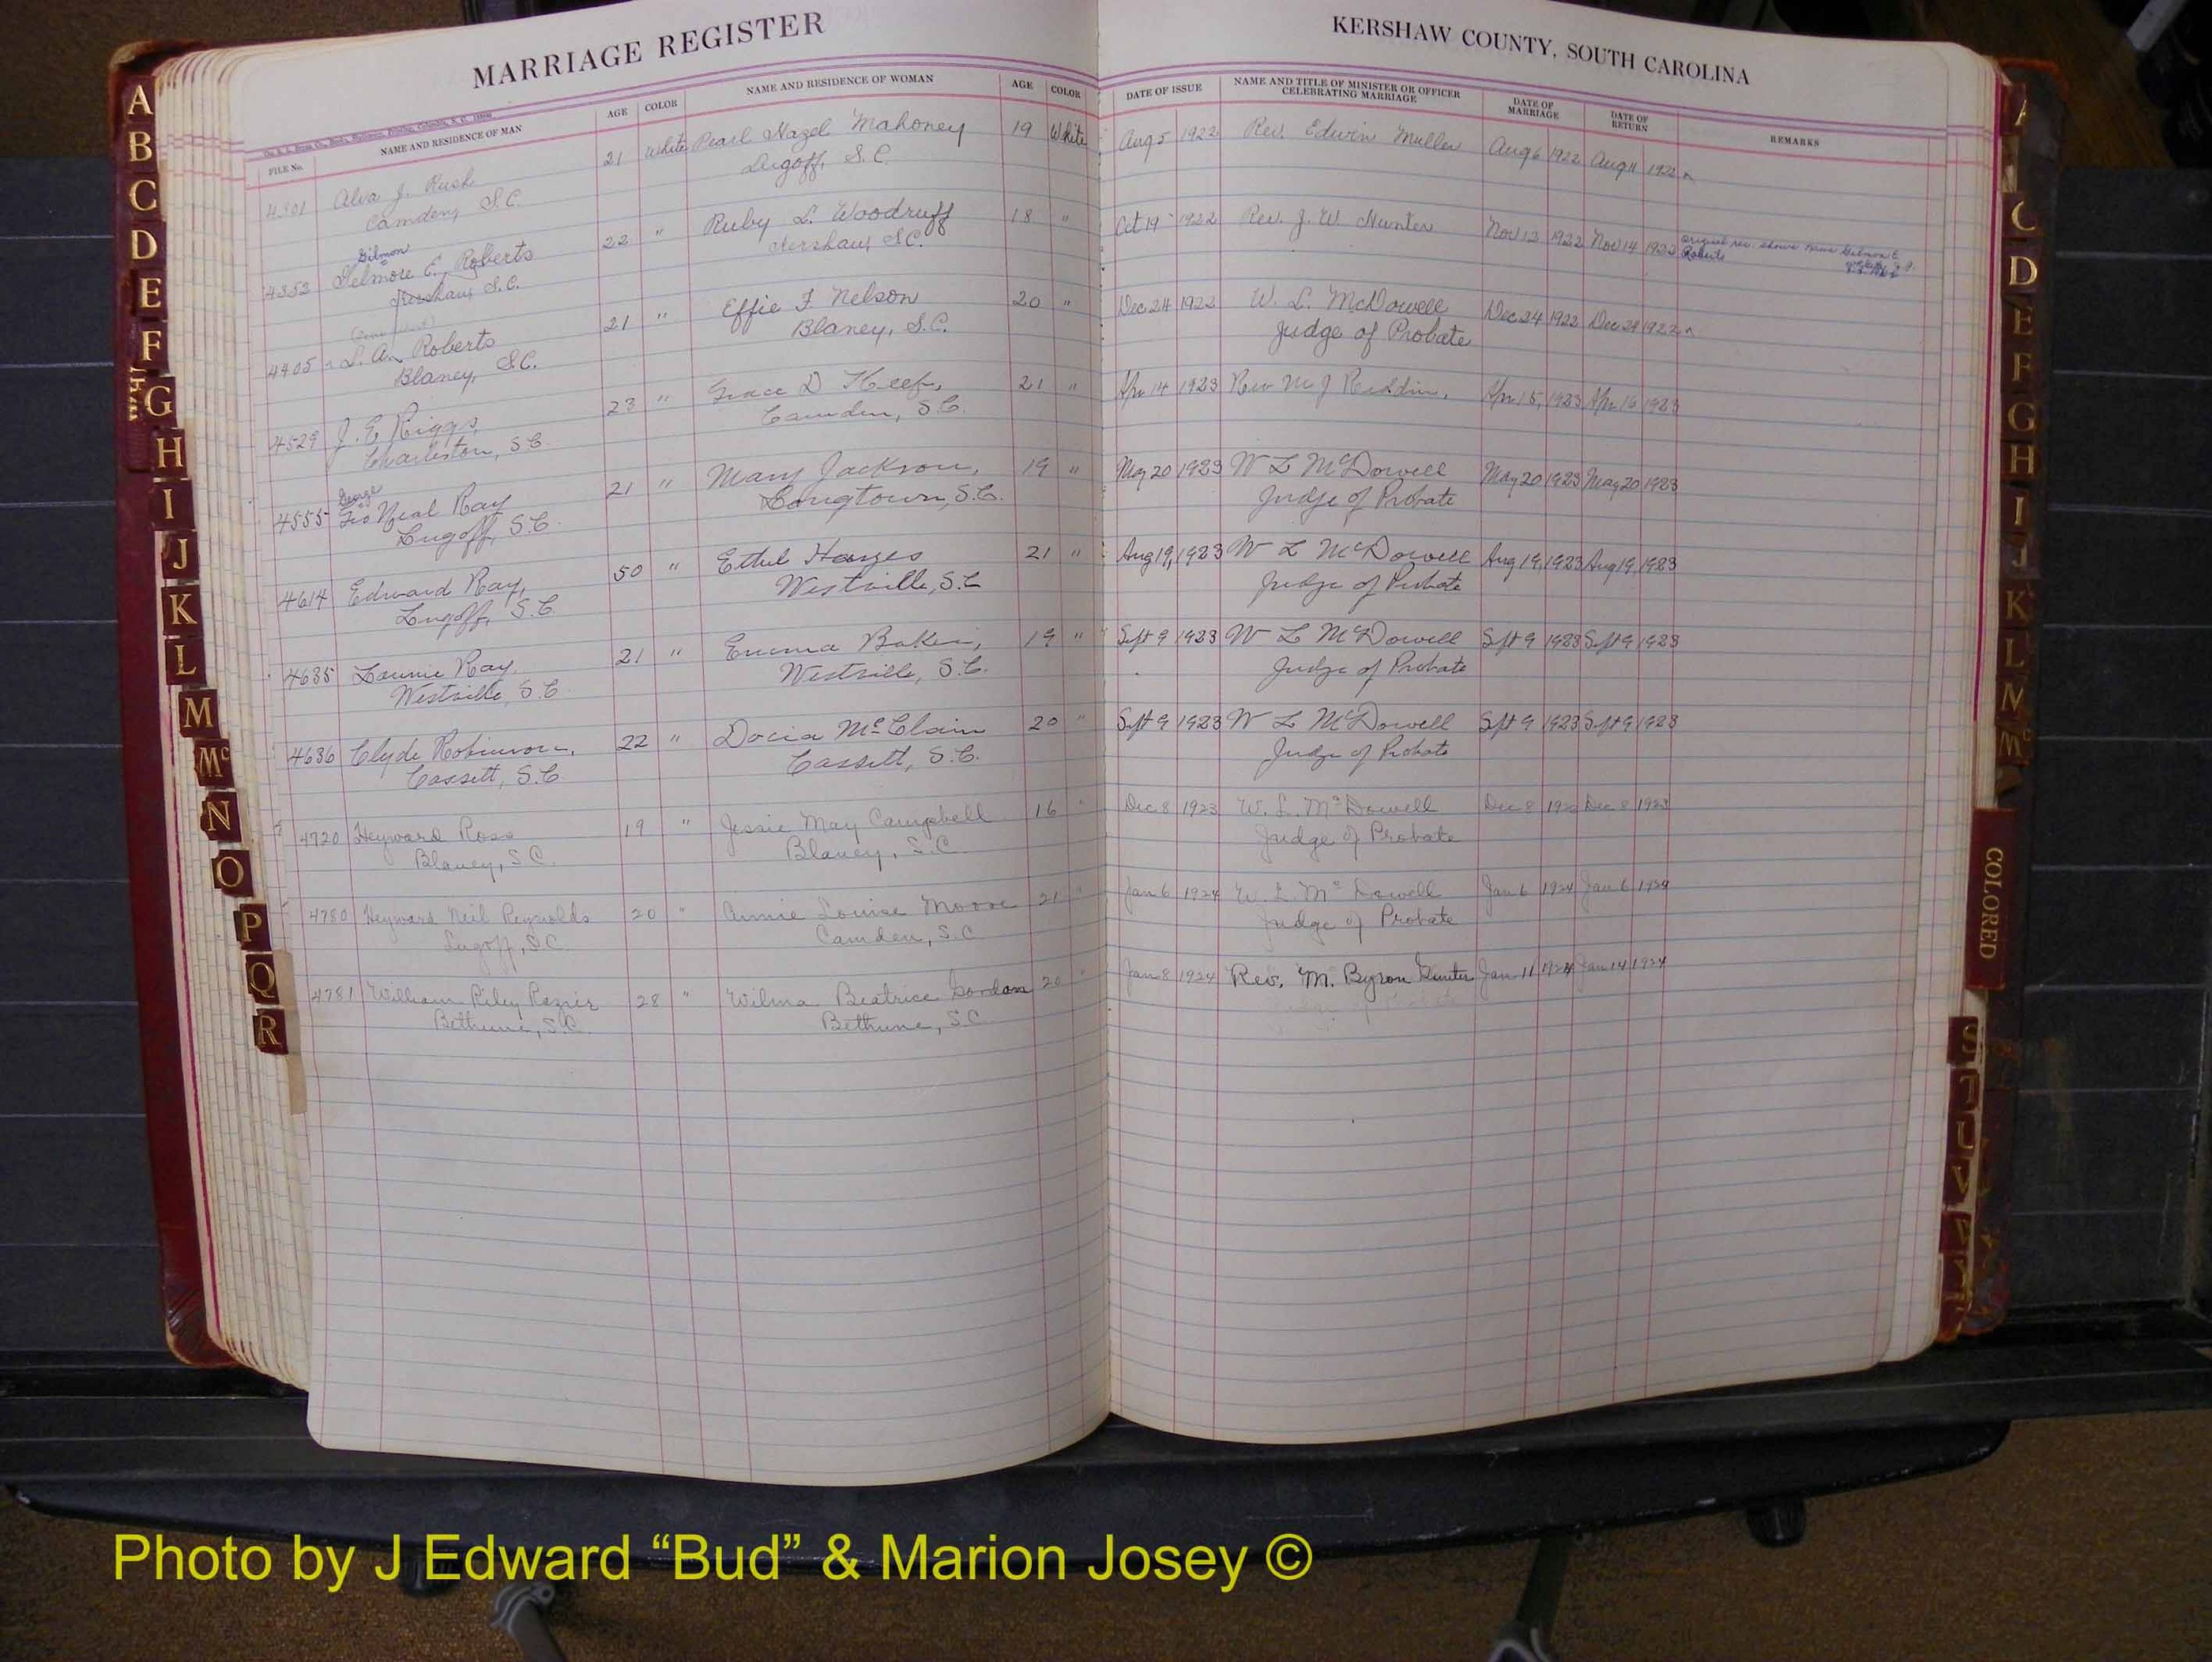 MARRIAGE REGISTER
KERSHAW COUNTY, SOUTH CAROLINA
FILE No. NAME AND RESIDENCE OF MAN AGE COLOR NAME AND RESIDENCE OF WOMAN AGE COLOR DATE OF ISSUE NAME AND TITLE OF MINISTER OR OFFICER CELEBRATING MARRIAGE DATE OF MARRIAGE DATE OF RETURN REMARKS
4301 Alva J. Rush 21 White Pearl Hazel Mahoney 19 White Aug 5 1922 Rev. Edwin Muller Aug 6 1922 Aug 11 1922
Camden, S.C. Lugoff, S.C.
Gilmon
4353 Gelmore E. Roberts 22 " Ruby L. Woodruff 18 " Oct 19 1922 Rev. J. W. Hunter Nov 12 1922 Nov 14 1922 Original rec. shows name Gilmon E.
Kershaw, S.C. Kershaw, S.C. Roberts
4405 L. A. Roberts 21 " Effie F Nelson 20 " Dec 24 1922 W. L. McDowell Dec 24 1922 Dec 29 1922
Blaney, S.C. Blaney, S.C. Judge of Probate
4529 J. E. Riggs, 23 " Grace D 21 " Apr 14 1923 Rev M J Apr 15, 1923 Apr 16 1923
Charleston, S.C. Camden, S.C.
George
4555 Geo Neal Ray 21 " Mary Jackson, 19 " May 20 1923 W L McDowell May 20 1923 May 20 1923
Lugoff, S.C. Longtown, S.C. Judge of Probate
4614 Edward Ray, 50 " Ethel 21 " Aug 19, 1923 W L McDowell Aug 19, 1923 Aug 19 1923
Lugoff, S.C. Westville, S.C Judge of Probate
4635 Lonnie Ray, 21 " Emma Baker, 19 " Sept 9 1923 W L McDowell Sept 9 1923 Sept 9 1923
Westville, S.C. Westville, S.C. Judge of Probate
4636 Clyde Robinson, 22 " Docia McClain 20 " Sept 9 1923 W L McDowell Sept 9 1923 Sept 9 1923
Cassett, S.C. Cassett, S.C. Judge of Probate
4720 Heyward Ross 19 " Jessie May Campbell 16 " Dec 8 1923 W. L. McDowell Dec 8 1923 Dec 8 1923
Blaney, S.C. Blaney, S.C. Judge of Probate
4780 Heyward Neil Reynolds 20 " Annie Louise Moore 21 " Jan 6 1924 W. L. McDowell Jan 6 1924 Jan 6 1924
Lugoff, S.C. Camden, S.C Judge of Probate
4781 William Riley 28 " Wilma Beatrice Gordon 20 " Jan 8 1924 Rev. M. Byron Gunter Jan 11 1924 Jan 14 1924
Bethune, S.C. Bethune, S.C.
A
B
C
D
E
F
G
H
I
J
K
L
M
Mc
N
O
P
Q
R
C
D
E
F
G
H
I
J
K
L
M
Mc
COLORED
S
T
U
V
Photo by J Edward “Bud” & Marion Josey ©